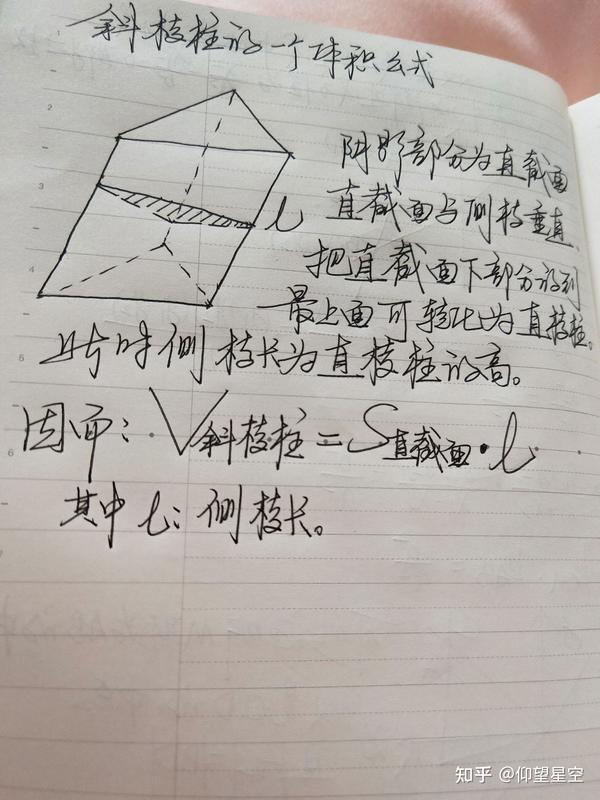 斜棱柱的一个体积公式
阴影部分为直截面
直截面与侧棱垂直。
l
把直截面下部分放到
最上面可转化为直棱柱。
此时侧棱长为直棱柱的高。
因而：V斜棱柱=S直截面·l
其中l：侧棱长。
知乎 @仰望星空